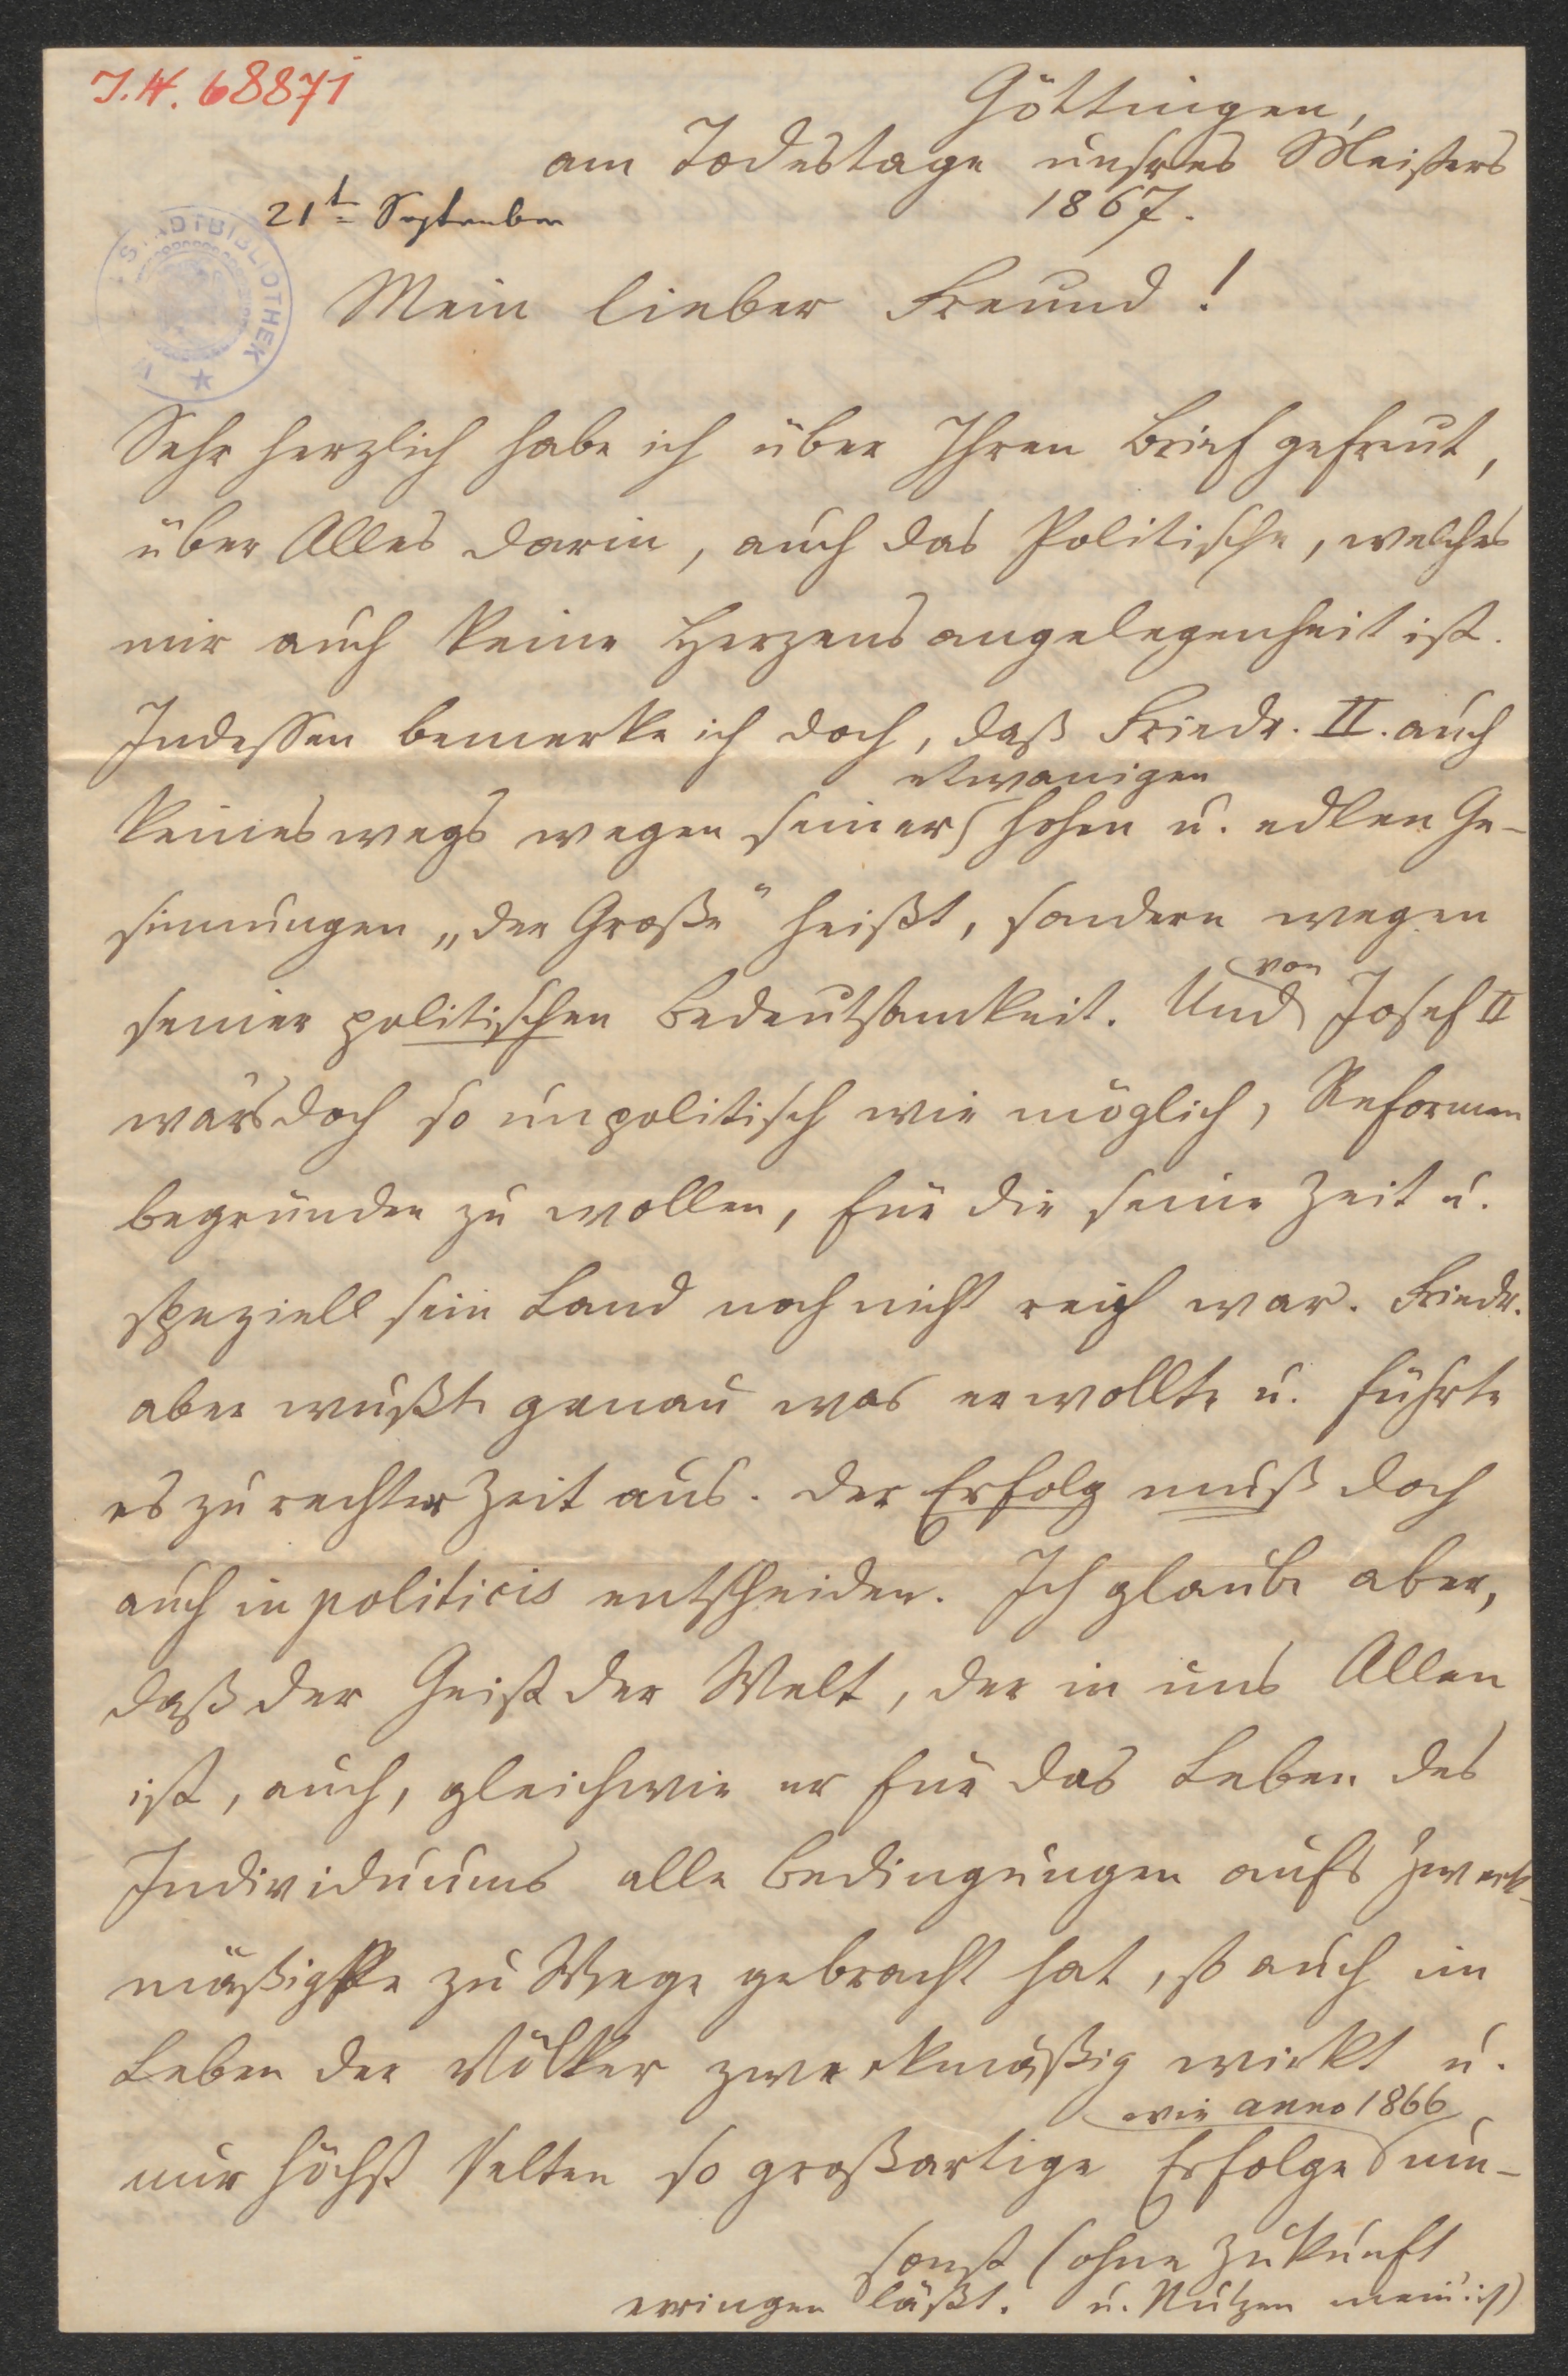 I. N. 68871
Göttingen,
am Todestage unsres Meisters
21t September 1867.
STADTBIBLIOTHEK
Mein lieber Freund!
Sehr herzlich habe ich über Ihren Brief gefreut,
über Alles darin, auch das Politische, welches
mir auch keine Herzensangelegenheit ist.
Indessen bemerke ich doch, daß Friedr. II. auch
etwanigen
keineswegs wegen seiner hohen u. edlen Ge-
sinnungen „der Große“ heißt, sondern wegen
von
seiner politischen Bedeutsamkeit. Und Josef II
wärs doch so unpolitisch wie möglich, Reformen
begründen zu wollen, für die seine Zeit u.
speziell sein Land noch nicht reif war. Friedr.
aber wußte genau was er wollte u. führte
es zu rechter Zeit aus. Der Erfolg muß doch
auch in politicis entscheiden. Ich glaube aber,
daß der Geist der Welt, der in uns Allen
ist, auch, gleichwie er für das Leben des
Individuums alle Bedingungen aufs zweck-
mäßigste zu Wege gebracht hat, so auch im
Leben der Völker zweckmäßig wirkt u.
wie anno 1866
nur höchst selten so großartige Erfolge um-
sonst (ohne Zukunft
erringen läßt. u. Nutzen mein' ich)